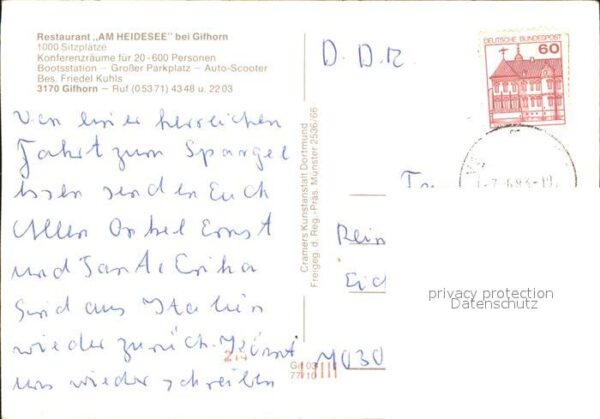 Restaurant „AM HEIDESEE" bei Gifhorn
1000 Sitzplätze
Konferenzräume für 20-600 Personen
Bootsstation – Großer Parkplatz – Auto-Scooter
Bes. Friedel Kuhls
3170 Gifhorn – Ruf (05371) 4348 u. 2203
Von einer herrlichen
Fahrt zum Spargel
essen senden Euch
Allen Onkel Ernst
und Tante Erika
Sind aus Italien
wieder zurück. Könnt
uns wieder schreiben
Cramers Kunstanstalt Dortmund
Freigeg. d. Reg.-Präs. Münster 2536/66
D.D.R.
DEUTSCHE BUNDESPOST
60
Rein
Eic
7030
privacy protection
Datenschutz